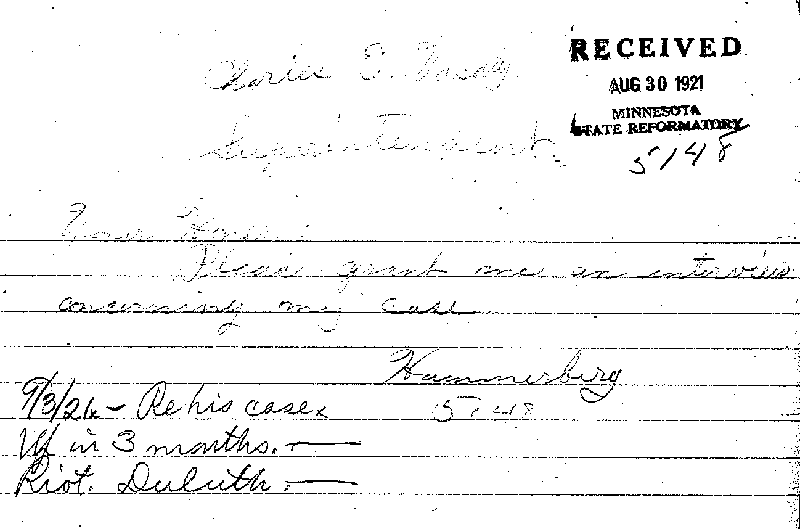 RECEIVED
AUG 30 1921
MINNESOTA
STATE REFORMATORY
5148
Charles S. Vasaly
Superintendent.
Your Honor:
Please grant me an interview
concerning my case
Hammerberg
5148
9/3/21 - Re his case.
in 3 months. —
Riot. Duluth. —